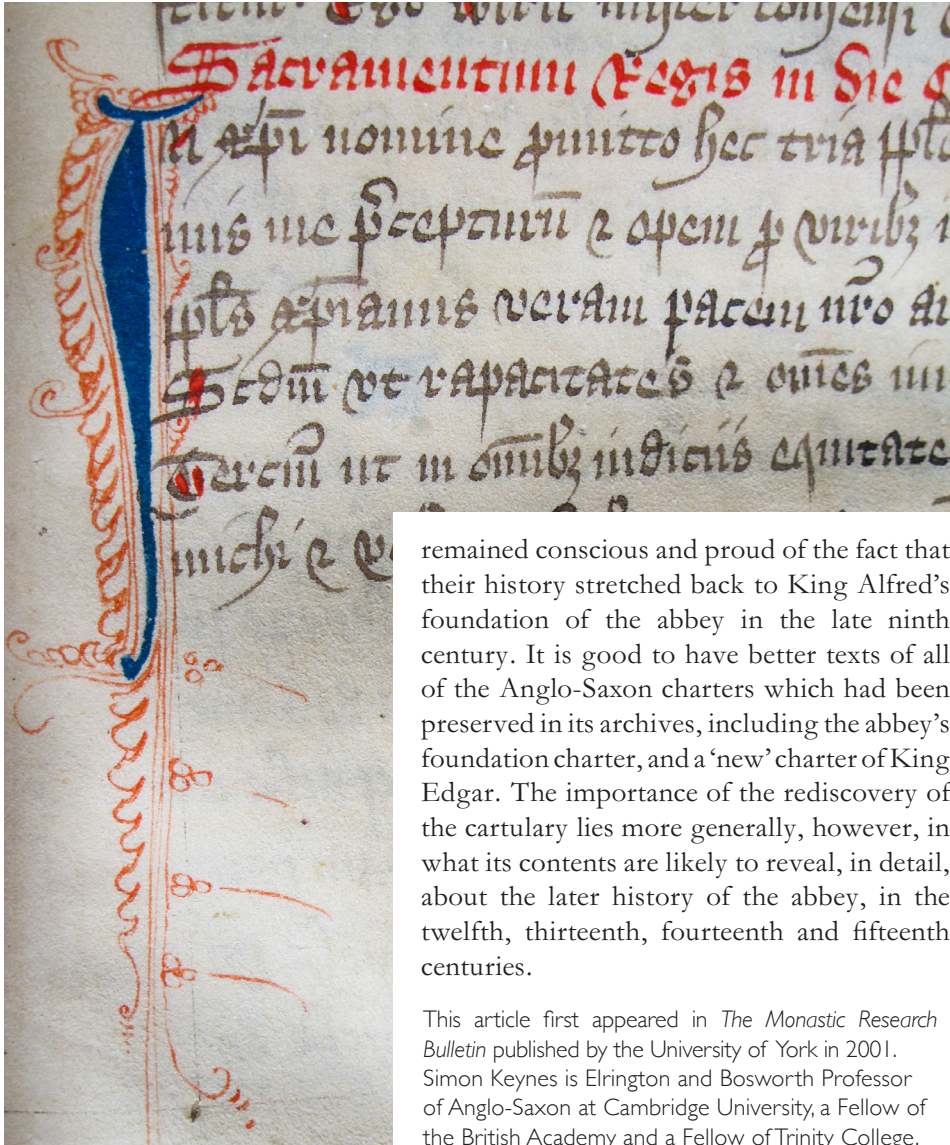 Sacramentum Regis in die
In xpi nomine promitto hec tria
mis me precepturū ⁊ opem ꝓ viribꝫ
ppls xpianus veram pacem nr̄o
Scdm̄ vt rapacitates ⁊ om̄es
Terciū ut in om̄ibꝫ iudiciis equitate
michi ⁊
remained conscious and proud of the fact that
their history stretched back to King Alfred’s
foundation of the abbey in the late ninth
century. It is good to have better texts of all
of the Anglo-Saxon charters which had been
preserved in its archives, including the abbey’s
foundation charter, and a ‘new’ charter of King
Edgar. The importance of the rediscovery of
the cartulary lies more generally, however, in
what its contents are likely to reveal, in detail,
about the later history of the abbey, in the
twelfth, thirteenth, fourteenth and fifteenth
centuries.
This article first appeared in The Monastic Research
Bulletin published by the University of York in 2001.
Simon Keynes is Elrington and Bosworth Professor
of Anglo-Saxon at Cambridge University, a Fellow of
the British Academy and a Fellow of Trinity College.